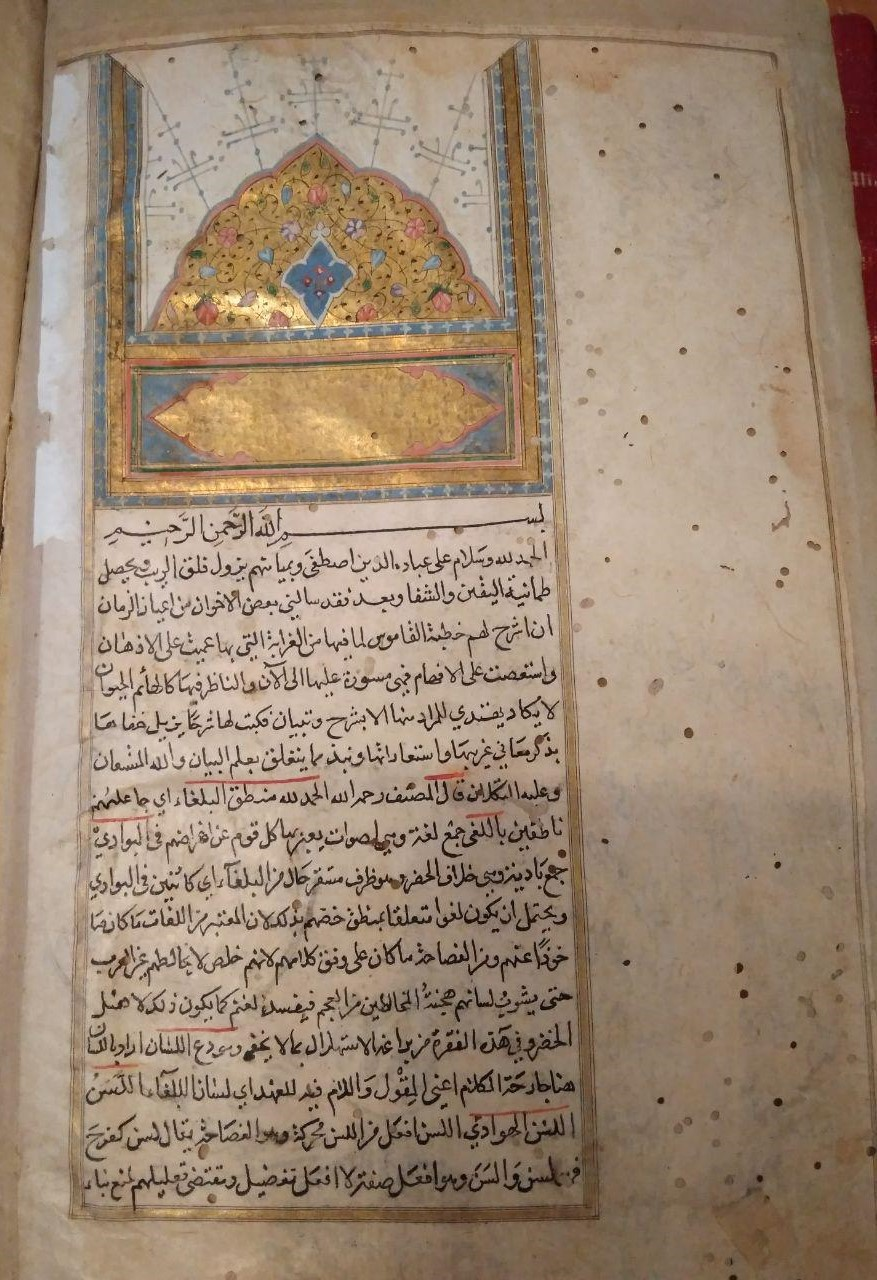 بسم الله الرحمن الرحيم
الحمد لله وسلام على عباده الذين اصطفى وبميامنهم يزول قلق الريب ويحصل
طمانية اليقين والشفا وبعد فقد سالني بعض الاخوان من اعيان الزمان
ان اشرح لهم خطبة القاموس لما فيها من الغرابة التي بها عميت على الاذهان
واستعصت على الافهام فهي مسورة عليها الى الآن والناظر فيها كالهائم الحيران
لا يكاد يهتدي للمراد منها الا بشرح وتبيان فكتبت لها شرحا يزيل خفاها
بذكر معاني غريبها واستعاراتها ونبذ مما يتعلق بعلم البيان والله المستعان
وعليه التكلان قال المصنف رحمه الله الحمد لله منطق البلغاء اي جاعلهم
ناطقين باللغى جمع لغة وهي اصوات يعبر بها كل قوم عن اغراضهم في البوادي
جمع بادية وهي خلاف الحضر وهو ظرف مستقر حال من البلغآء اي كائنين في البوادي
ويحتمل ان يكون لغوا متعلقا بمنطق خصهم بذلك لان المعتبر من اللغات ما كان ما
خوذا عنهم ومن الفصاحة ما كان على وفق كلامهم لانهم خلص لا يخالطهم غير العرب
حتى يشوب لسانهم هجنة المخالطين من العجم فيفسد لغتهم كما يكون ذلك لاهل
الحضر وفي هذه الفقرة من براعة الاستهلال بما لا يخفى ومودع اللسان اراد باللسان
هنا جارحة الكلام اعني المقول واللام فيه للعهد اي لسان البلغآء اللسن
اللسن الهوادي اللسن افعل من اللسن محركة وهو الفصاحة يقال لسن كفرح
فهو لسن والسن وهو افعل صفة لا افعل تفضيل وتقتضي تعليلهم لمنع بناء